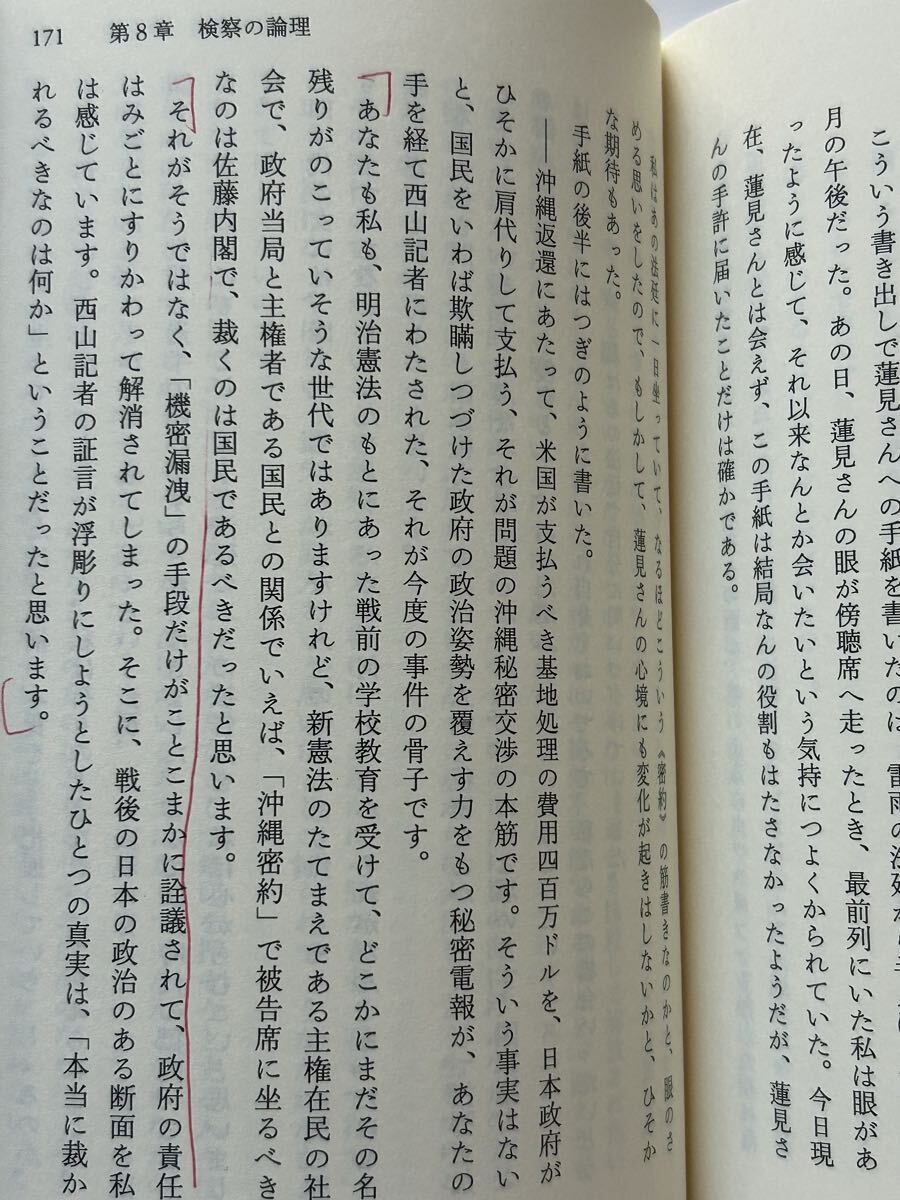 こういう書き出しで蓮見さんへの手紙を書いたのは、雷雨の
月の午後だった。あの日、蓮見さんの眼が傍聴席へ走ったとき、最前列にいた私は眼があ
ったように感じて、それ以来なんとか会いたいという気持につよくかられていた。今日現
在、蓮見さんとは会えず、この手紙は結局なんの役割もはたさなかったようだが、蓮見さ
んの手許に届いたことだけは確かである。
171 第8章 検察の論理
私はあの法廷に一日坐っていて、なるほどこういう《密約》の筋書きなのかと、眼のさ
める思いをしたので、もしかして、蓮見さんの心境にも変化が起きはしないかと、ひそか
な期待もあった。
手紙の後半にはつぎのように書いた。
――沖縄返還にあたって、米国が支払うべき基地処理の費用四百万ドルを、日本政府が
ひそかに肩代りして支払う、それが問題の沖縄秘密交渉の本筋です。そういう事実はない
と、国民をいわば欺瞞しつづけた政府の政治姿勢を覆えす力をもつ秘密電報が、あなたの
手を経て西山記者にわたされた、それが今度の事件の骨子です。
あなたも私も、明治憲法のもとにあった戦前の学校教育を受けて、どこかにまだその名
残りがのこっていそうな世代ではありますけれど、新憲法のたてまえである主権在民の社
会で、政府当局と主権者である国民との関係でいえば、「沖縄密約」で被告席に坐るべき
なのは佐藤内閣で、裁くのは国民であるべきだったと思います。
それがそうではなく、「機密漏洩」の手段だけがことこまかに詮議されて、政府の責任
はみごとにすりかわって解消されてしまった。そこに、戦後の日本の政治のある断面を私
は感じています。西山記者の証言が浮彫りにしようとしたひとつの真実は、「本当に裁か
れるべきなのは何か」ということだったと思います。